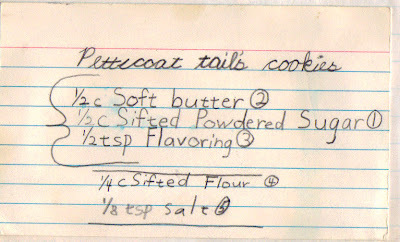 Pettecoat tail's cookies
1/2 c Soft butter ②
1/2 c Sifted Powdered Sugar ①
1/2 tsp Flavoring ③
1/4 c Sifted Flour ④
1/8 tsp Salt ⑤